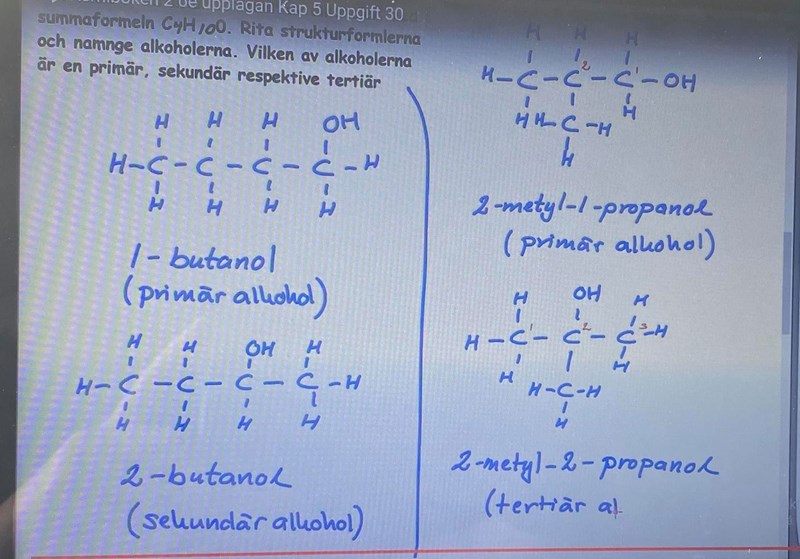 2 de upplagan Kap 5 Uppgift 30
summaformeln C4H10O. Rita strukturformlerna
och namnge alkoholerna. Vilken av alkoholerna
är en primär, sekundär respektive tertiär
H H H OH
H-C-C-C-C-H
H H H H
1-butanol
(primär alkohol)
H H OH H
H-C-C-C-C-H
H H H H
2-butanol
(sekundär alkohol)
H H H
H-C-C2-C1-OH
H H-C-H H
H
2-metyl-1-propanol
(primär alkohol)
H OH H
H-C1-C2-C3-H
H H
H-C-H
H
2-metyl-2-propanol
(tertiär al